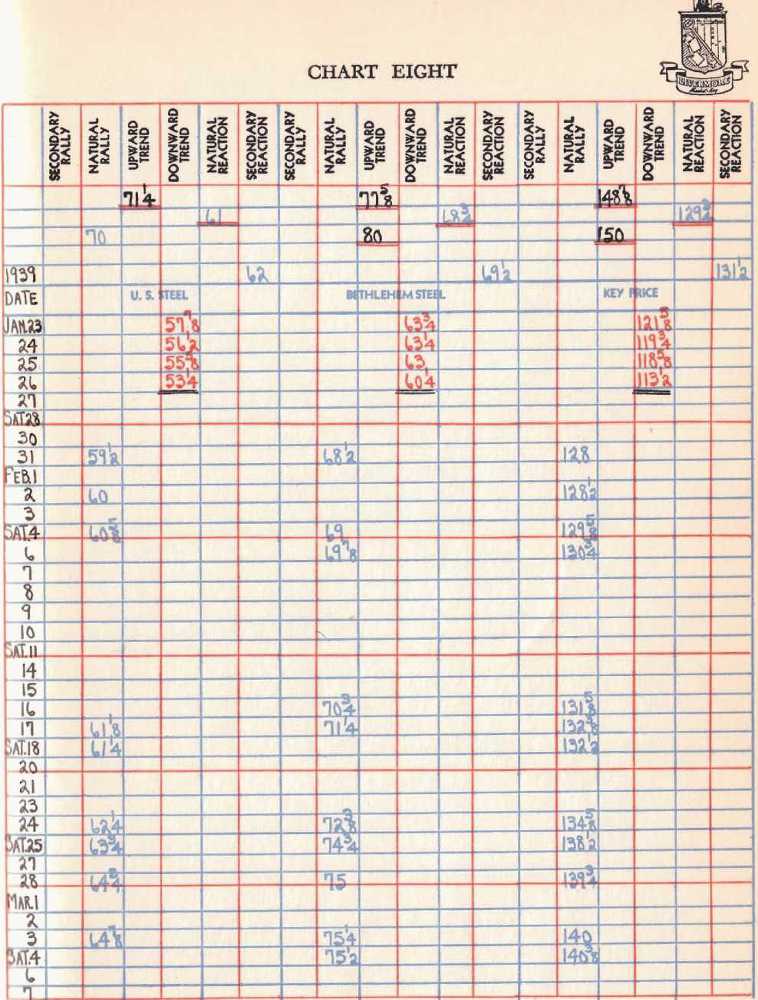 LIVERMORE
CHART EIGHT
SECONDARY RALLY NATURAL RALLY UPWARD TREND DOWNWARD TREND NATURAL REACTION SECONDARY REACTION SECONDARY RALLY NATURAL RALLY UPWARD TREND DOWNWARD TREND NATURAL REACTION SECONDARY REACTION SECONDARY RALLY NATURAL RALLY UPWARD TREND DOWNWARD TREND NATURAL REACTION SECONDARY REACTION
71 1/4 77 5/8 148 7/8
61 68 3/4 129 3/4
70 80 150
1939 62 69 1/2 131 1/2
DATE U. S. STEEL BETHLEHEM STEEL KEY PRICE
JAN.23 57 7/8 63 3/4 121 5/8
24 56 1/2 63 1/4 119 3/4
25 55 5/8 63 118 5/8
26 53 1/4 60 1/4 113 1/2
27
SAT.28
30
31 59 1/2 68 1/2 128
FEB.1
2 60 128 1/2
3
SAT.4 60 5/8 69 129 5/8
6 69 7/8 130 3/4
7
8
9
10
SAT.11
14
15
16 70 3/4 131 5/8
17 61 1/8 71 1/4 132 3/8
SAT.18 61 1/4 132 1/2
20
21
23
24 62 1/4 72 3/8 134 5/8
SAT.25 63 3/4 74 3/4 138 1/2
27
28 64 3/4 75 139 3/4
MAR.1
2
3 64 7/8 75 1/4 140
SAT.4 75 1/2 140 3/8
6
7